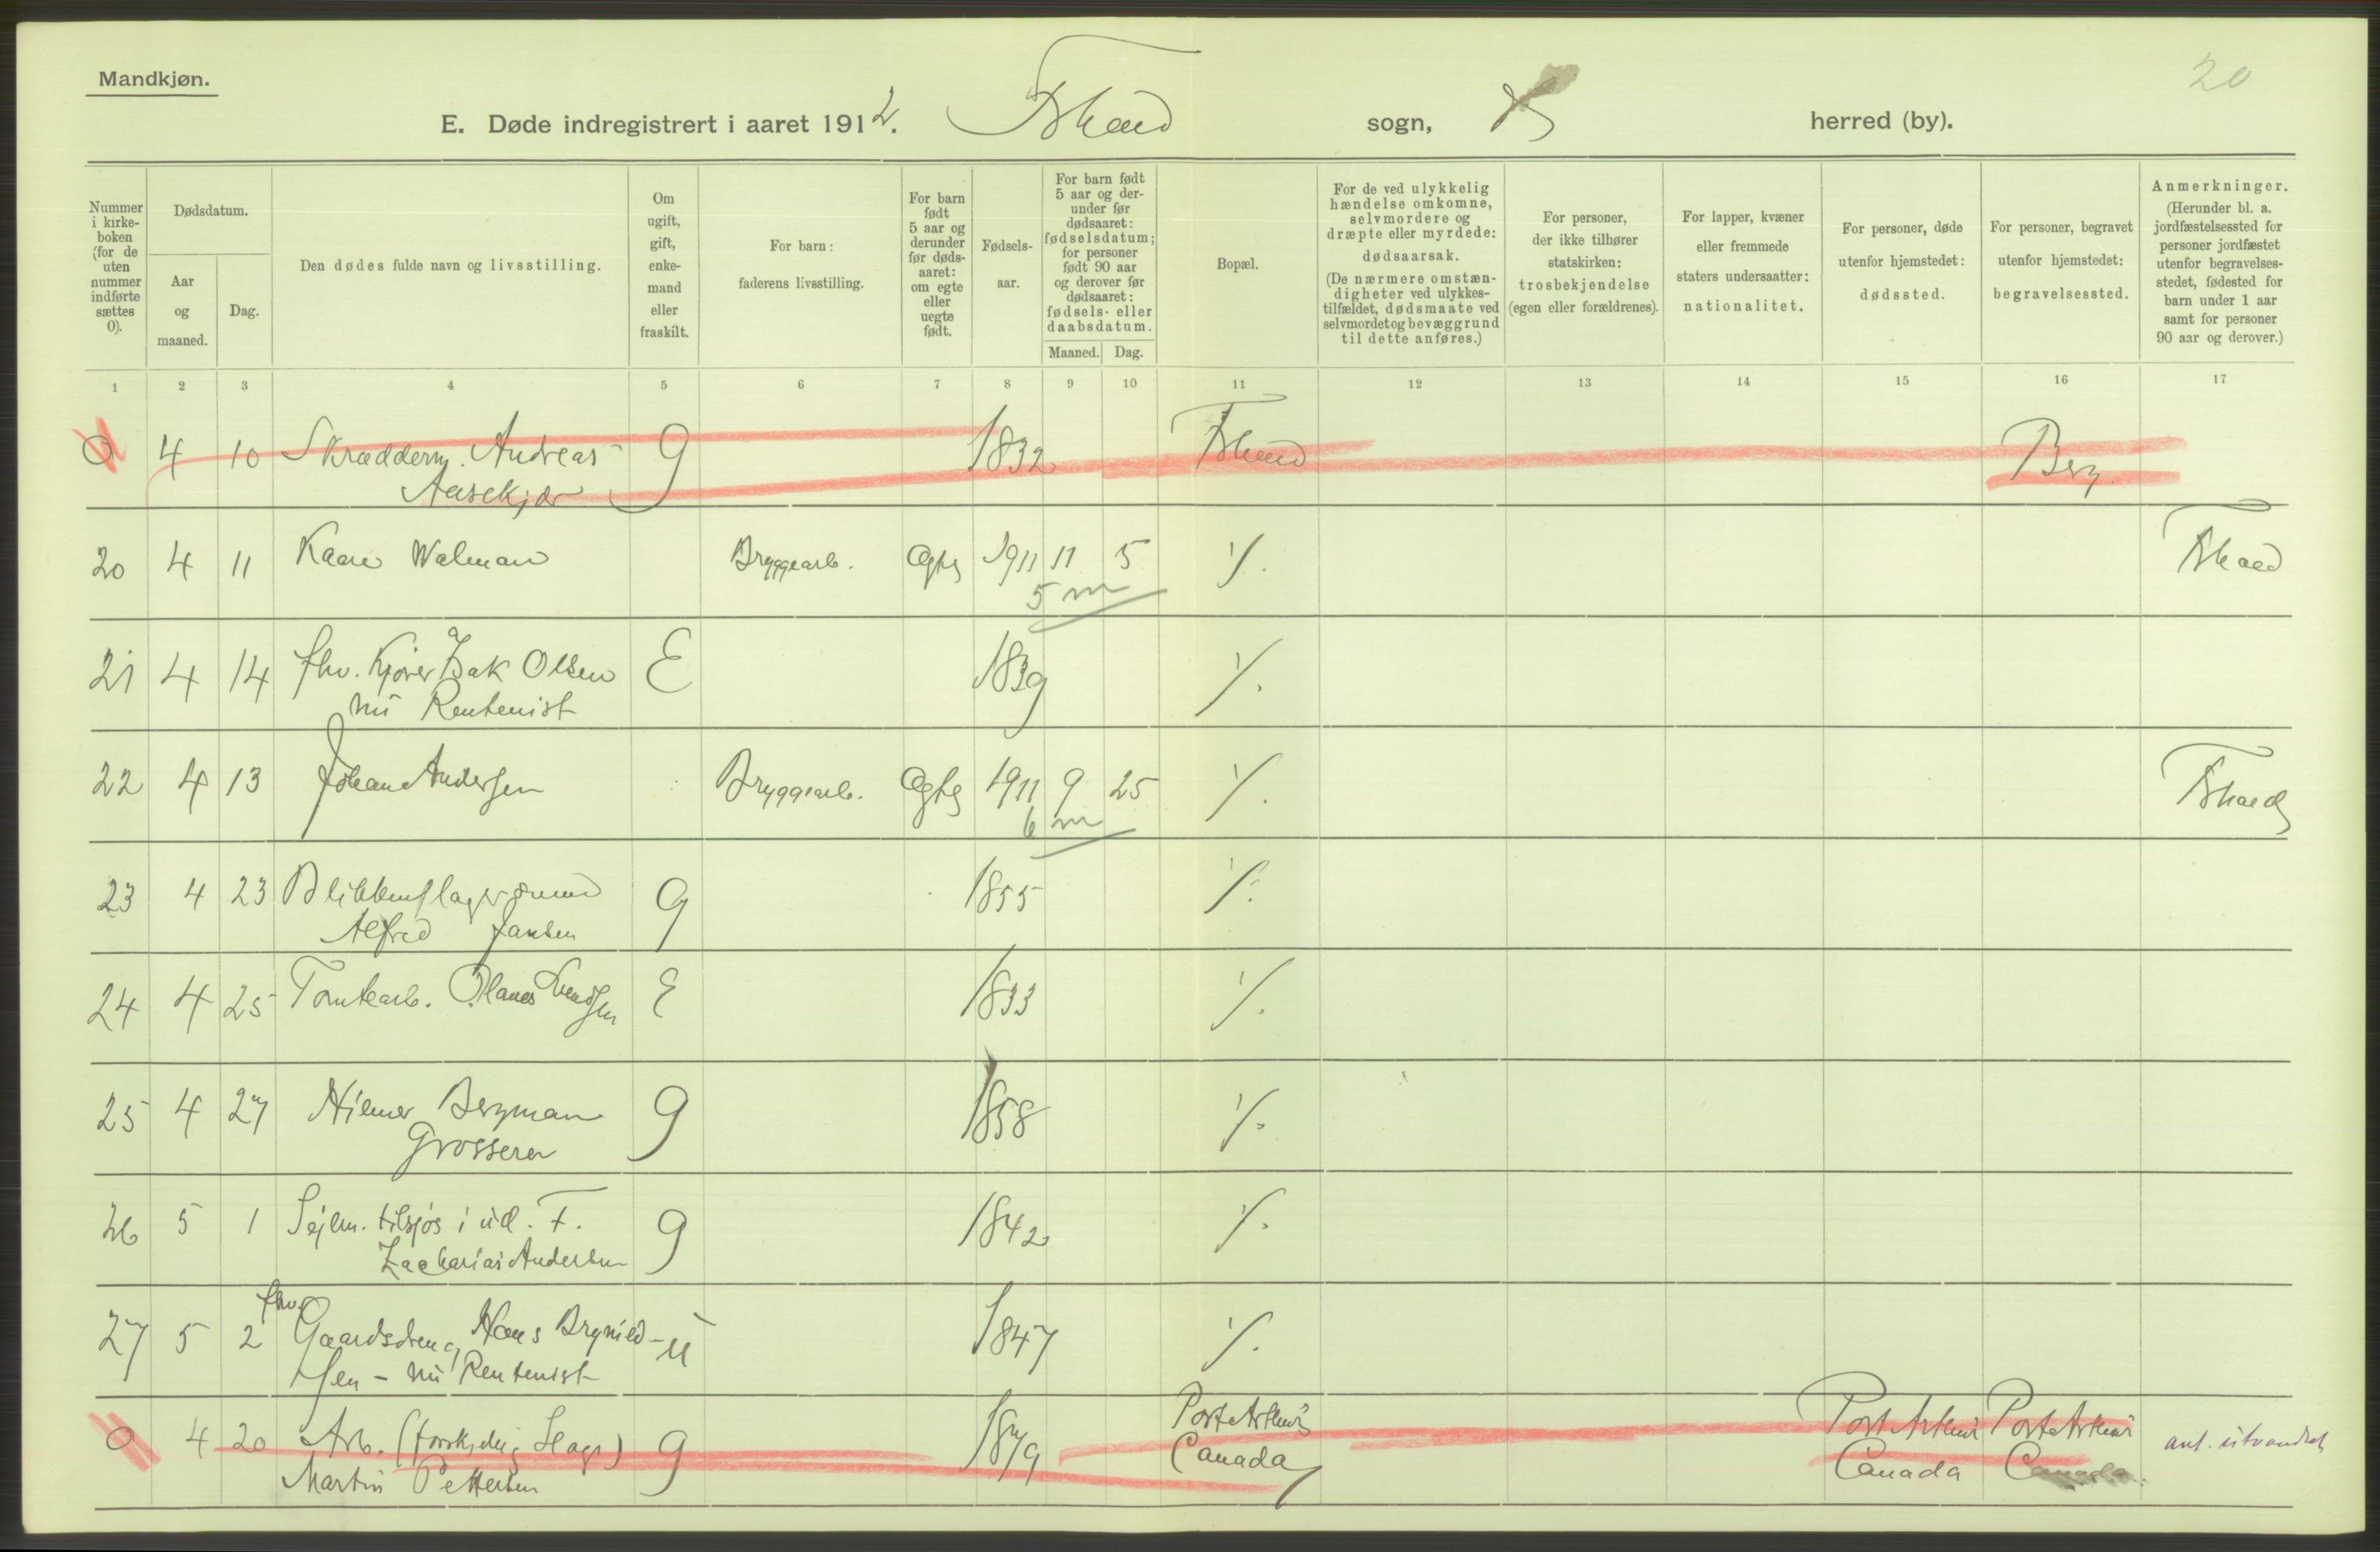 Mandkjøn.
20
E. Døde indregistrert i aaret 1912. Fshald sogn, herred (by).
Nummer i kirke-boken (for de uten nummer indførte sættes 0).
Dødsdatum.
Aar og maaned.
Dag.
Den dødes fulde navn og livsstilling.
Om ugift, gift, enke-mand eller fraskilt.
For barn: faderens livsstilling.
For barn født 5 aar og derunder før døds-aaret: om egte eller uegte født.
Fødsels-aar.
For barn født 5 aar og der-under før dødsaaret: fødselsdatum; for personer født 90 aar og derover før dødsaaret: fødsels- eller daabsdatum.
Maaned. Dag.
Bopæl.
For de ved ulykkelig hændelse omkomne, selvmordere og dræpte eller myrdede: dødsaarsak. (De nærmere omstæn-digheter ved ulykkes-tilfældet, dødsmaate ved selvmordet og bevæggrund til dette anføres.)
For personer, der ikke tilhører statskirken: trosbekjendelse (egen eller forældrenes).
For lapper, kvæner eller fremmede staters undersaatter: nationalitet.
For personer, døde utenfor hjemstedet: dødssted.
For personer, begravet utenfor hjemstedet: begravelsessted.
Anmerkninger. (Herunder bl. a. jordfæstelsessted for personer jordfæstet utenfor begravelses-stedet, fødested for barn under 1 aar samt for personer 90 aar og derover.)
1 2 3 4 5 6 7 8 9 10 11 12 13 14 15 16 17
0 4 10 Skrædderm. Andreas g 1832 Fshald Berg
Aasekjær
20 4 11 Kaare Walman Bryggearb. Ægte 1911 11 5 ./. Fshald
5 m
21 4 14 fhv. Kjører Isak Olsen E 1839 ./.
nu Rentenist
22 4 13 Johan Andersen Bryggearb. Ægte 1911 9 25 ./. Fshald
6 m
23 4 23 Blikkenslagersvend g 1855 ./.
Alfred Jansen
24 4 25 Tomtearb. Olaves Svendsen E 1833 ./.
25 4 27 Hilmer Bergman g 1858 ./.
Grosserer
26 5 1 Sejlm. tilsjøs i udl. F. g 1842 ./.
Zacharias Andersen
fhv.
27 5 2 Gaardsdreng Hans Brynild- u 1847 ./.
sen - nu Rentenist
0 4 20 Arb. (forskjelig Slags) g 1879 Port Arthur Port Arthur Port Arthur ant. utvandret
Martin Pettersen Canada Canada Canada.